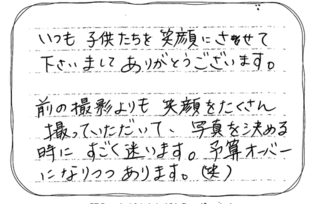 いつも 子供たちを 笑顔に させて
下さいまして ありがとうございます。
前の撮影よりも 笑顔をたくさん
撮っていただいて、写真を決める
時に すごく迷います。予算オーバー
になりつつ あります。(笑)